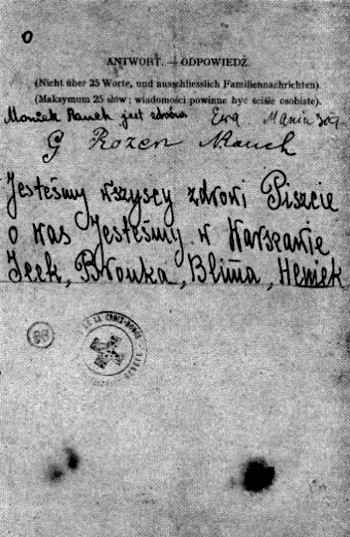 ANTWORT. — ODPOWIEDŹ
(Nicht über 25 Worte, und ausschliesslich Familiennachrichten).
(Maksymum 25 słów; wiadomości powinne być ściśle osobiste).
Moniek Ranek jest zdrów Ewa Mania
G Rozen
Jesteśmy wszyscy zdrowi Piszcie
o was Jesteśmy w Warszawie
Icek, Bronka, Blima, Heniek